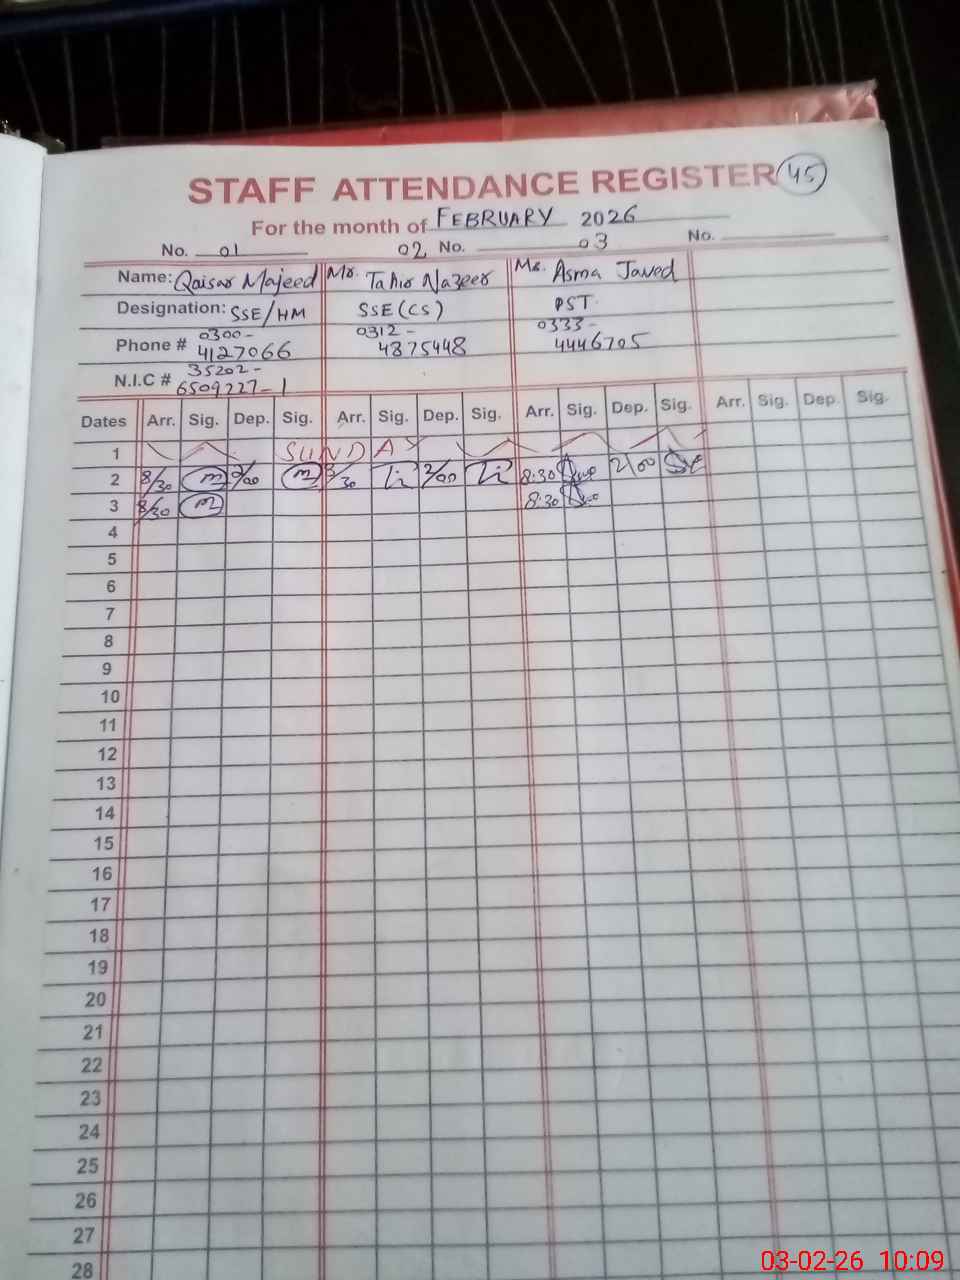 STAFF ATTENDANCE REGISTER 45
For the month of FEBRUARY 2026
No. 01 02 No. 03 No.
Name: Qaisar Majeed Mr. Tahir Nazeer Ms. Asma Javed
Designation: SSE/HM SSE(CS) PST
Phone # 0300- 0312- 0333-
4127066 4875448 4446705
N.I.C # 35202-
6509227-1
Dates Arr. Sig. Dep. Sig. Arr. Sig. Dep. Sig. Arr. Sig. Dep. Sig. Arr. Sig. Dep. Sig.
1 SUNDAY
2 8/30 2/00 8/30 2/00 8:30 2/00
3 8/30 8:30
4
5
6
7
8
9
10
11
12
13
14
15
16
17
18
19
20
21
22
23
24
25
26
27
28
03-02-26 10:09